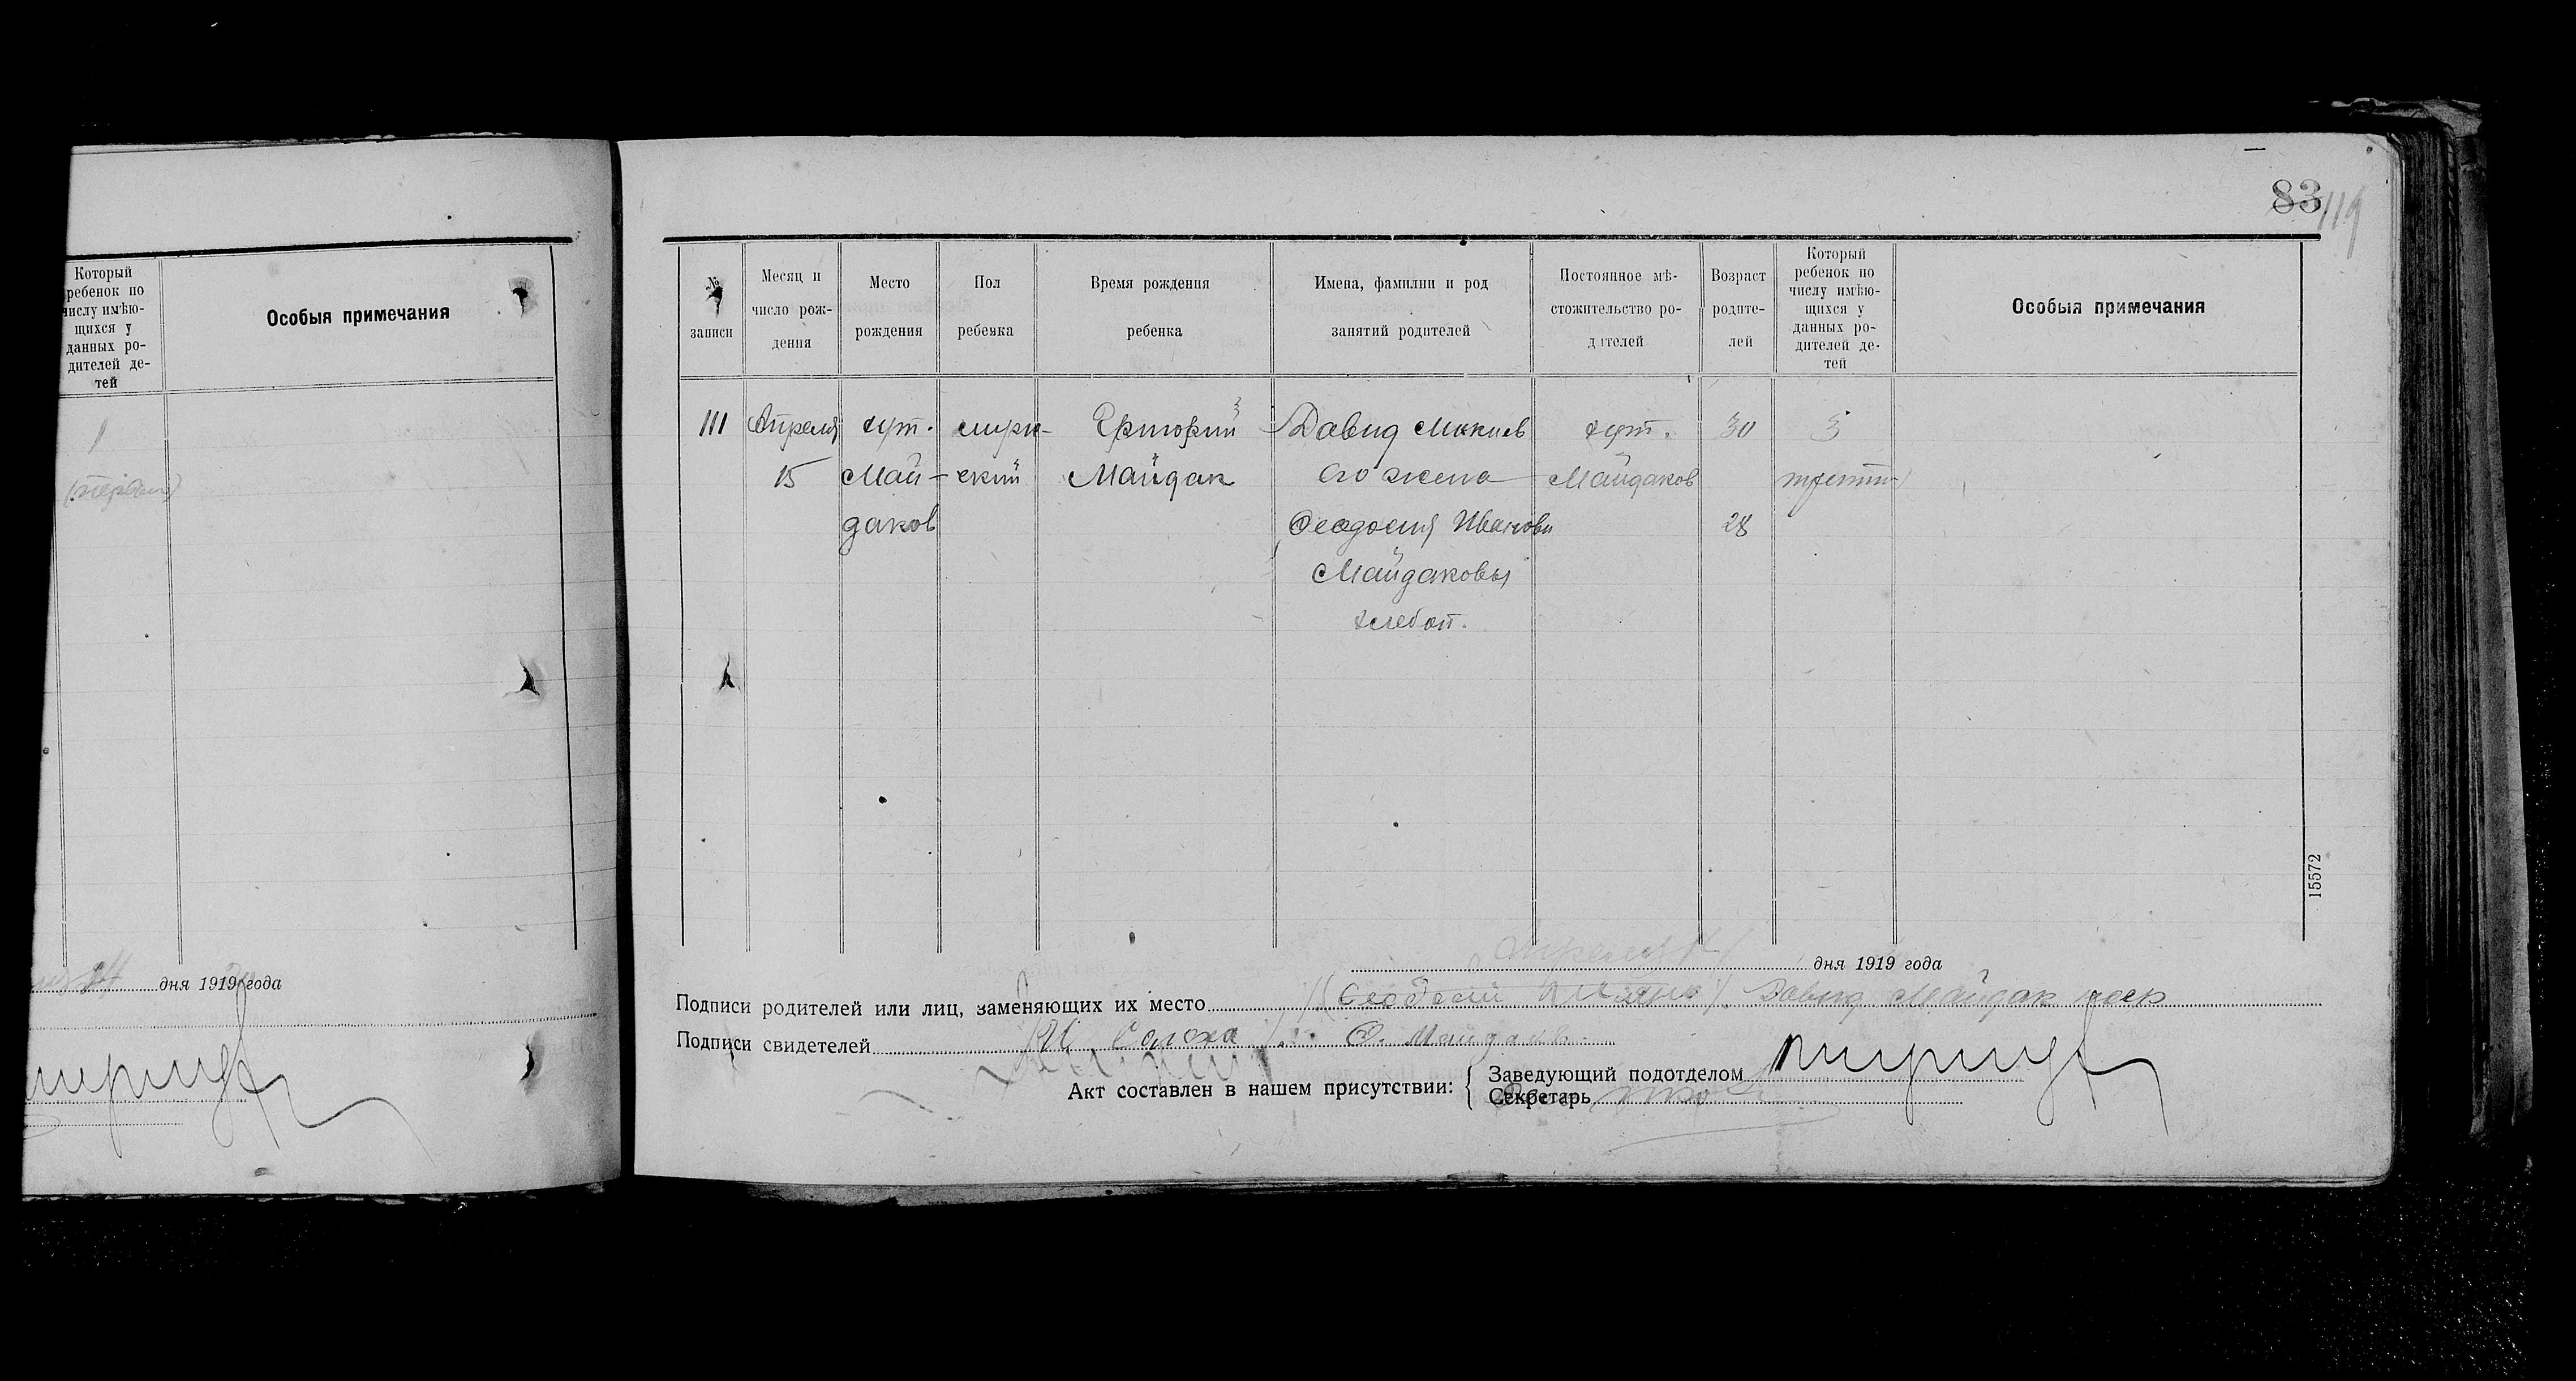 Который
ребенок по
числу имѣю-
щихся у
данных ро-
дителей де-
тей
Особыя примечания
1
(первый)
дня 1919 года
83
119
№
записи
Месяц и
число рож-
дения
Место
рождения
Пол
ребенка
Время рождения
ребенка
Имена, фамилии и род
занятий родителей
Постоянное мѣ-
стожительство ро-
дителей
Возраст
родите-
лей
Который
ребенок по
числу имѣю-
щихся у
данных ро-
дителей де-
тей
Особыя примечания
111
Апреля
15
хут.
Май-
даков
ский
Майдак
Давид
его жена
Феодосия Иванова
Майдаковы
хлебоп.
хут.
Майдаков
30
28
3
15572
дня 1919 года
Подписи родителей или лиц, заменяющих их место Давид Майдак
Подписи свидетелей
Акт составлен в нашем присутствии:
Заведующий подотделом
Секретарь